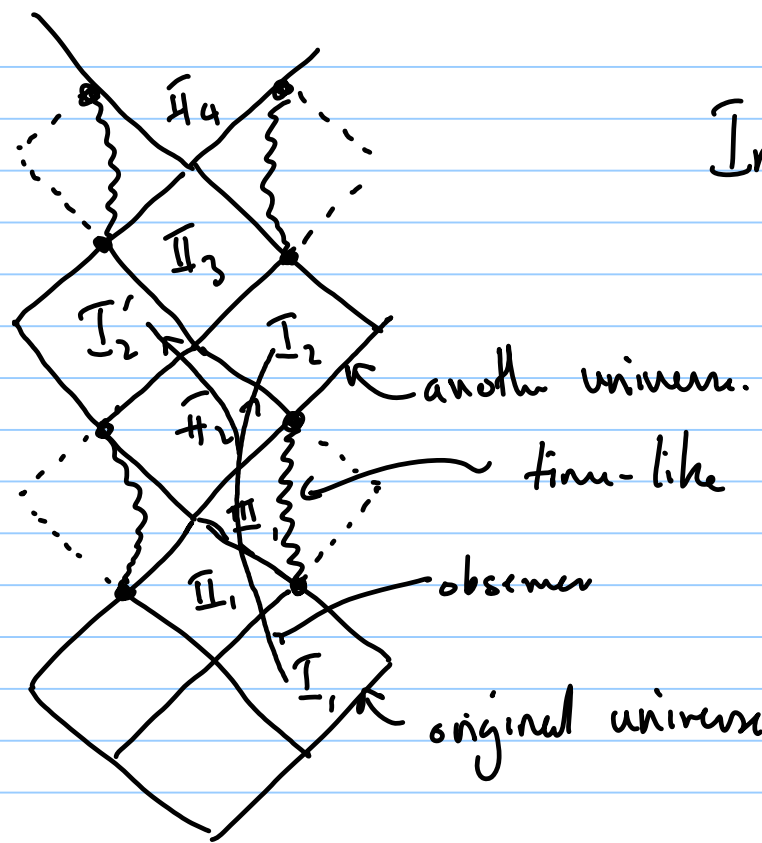 II₄
II₃
I₂'
I₂
another universe.
II₂
time-like
III₁
II₁
observer
I₁
original universe